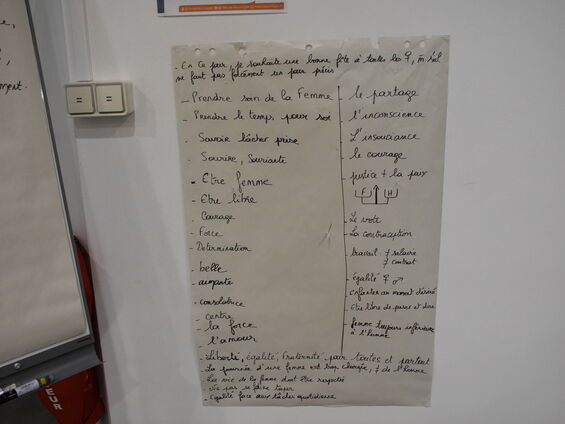 - En ce jour, je souhaite une bonne fête à toutes les ♀, m'sil
ne faut pas forcément un jour précis
- Prendre soin de la Femme
- Prendre le temps pour soi
Savoir lâcher prise
- Sourire, Souriante
- Etre femme
- Etre libre
- Courage
- Force
- Détermination
- belle
- aimante
- consolatrice
- centre
- la force
- l'amour
- le partage
l'inconscience
L'insouciance
le courage
justice + la paix
F H
Le vote
La contraception
travail : ≠ salaire
≠ contrat
égalité ♀ ♂
enfanter au moment désiré
Etre libre de penser et dire
- femme toujours inférieure
à l'homme
- Liberté, égalité, fraternité pour toutes et partout
- La journée d'une femme est bien chargée, ≠ de l'homme
- La vie de la femme doit être respectée
- Ne pas se faire tuer
- Egalité face aux tâches quotidiennes
EUR